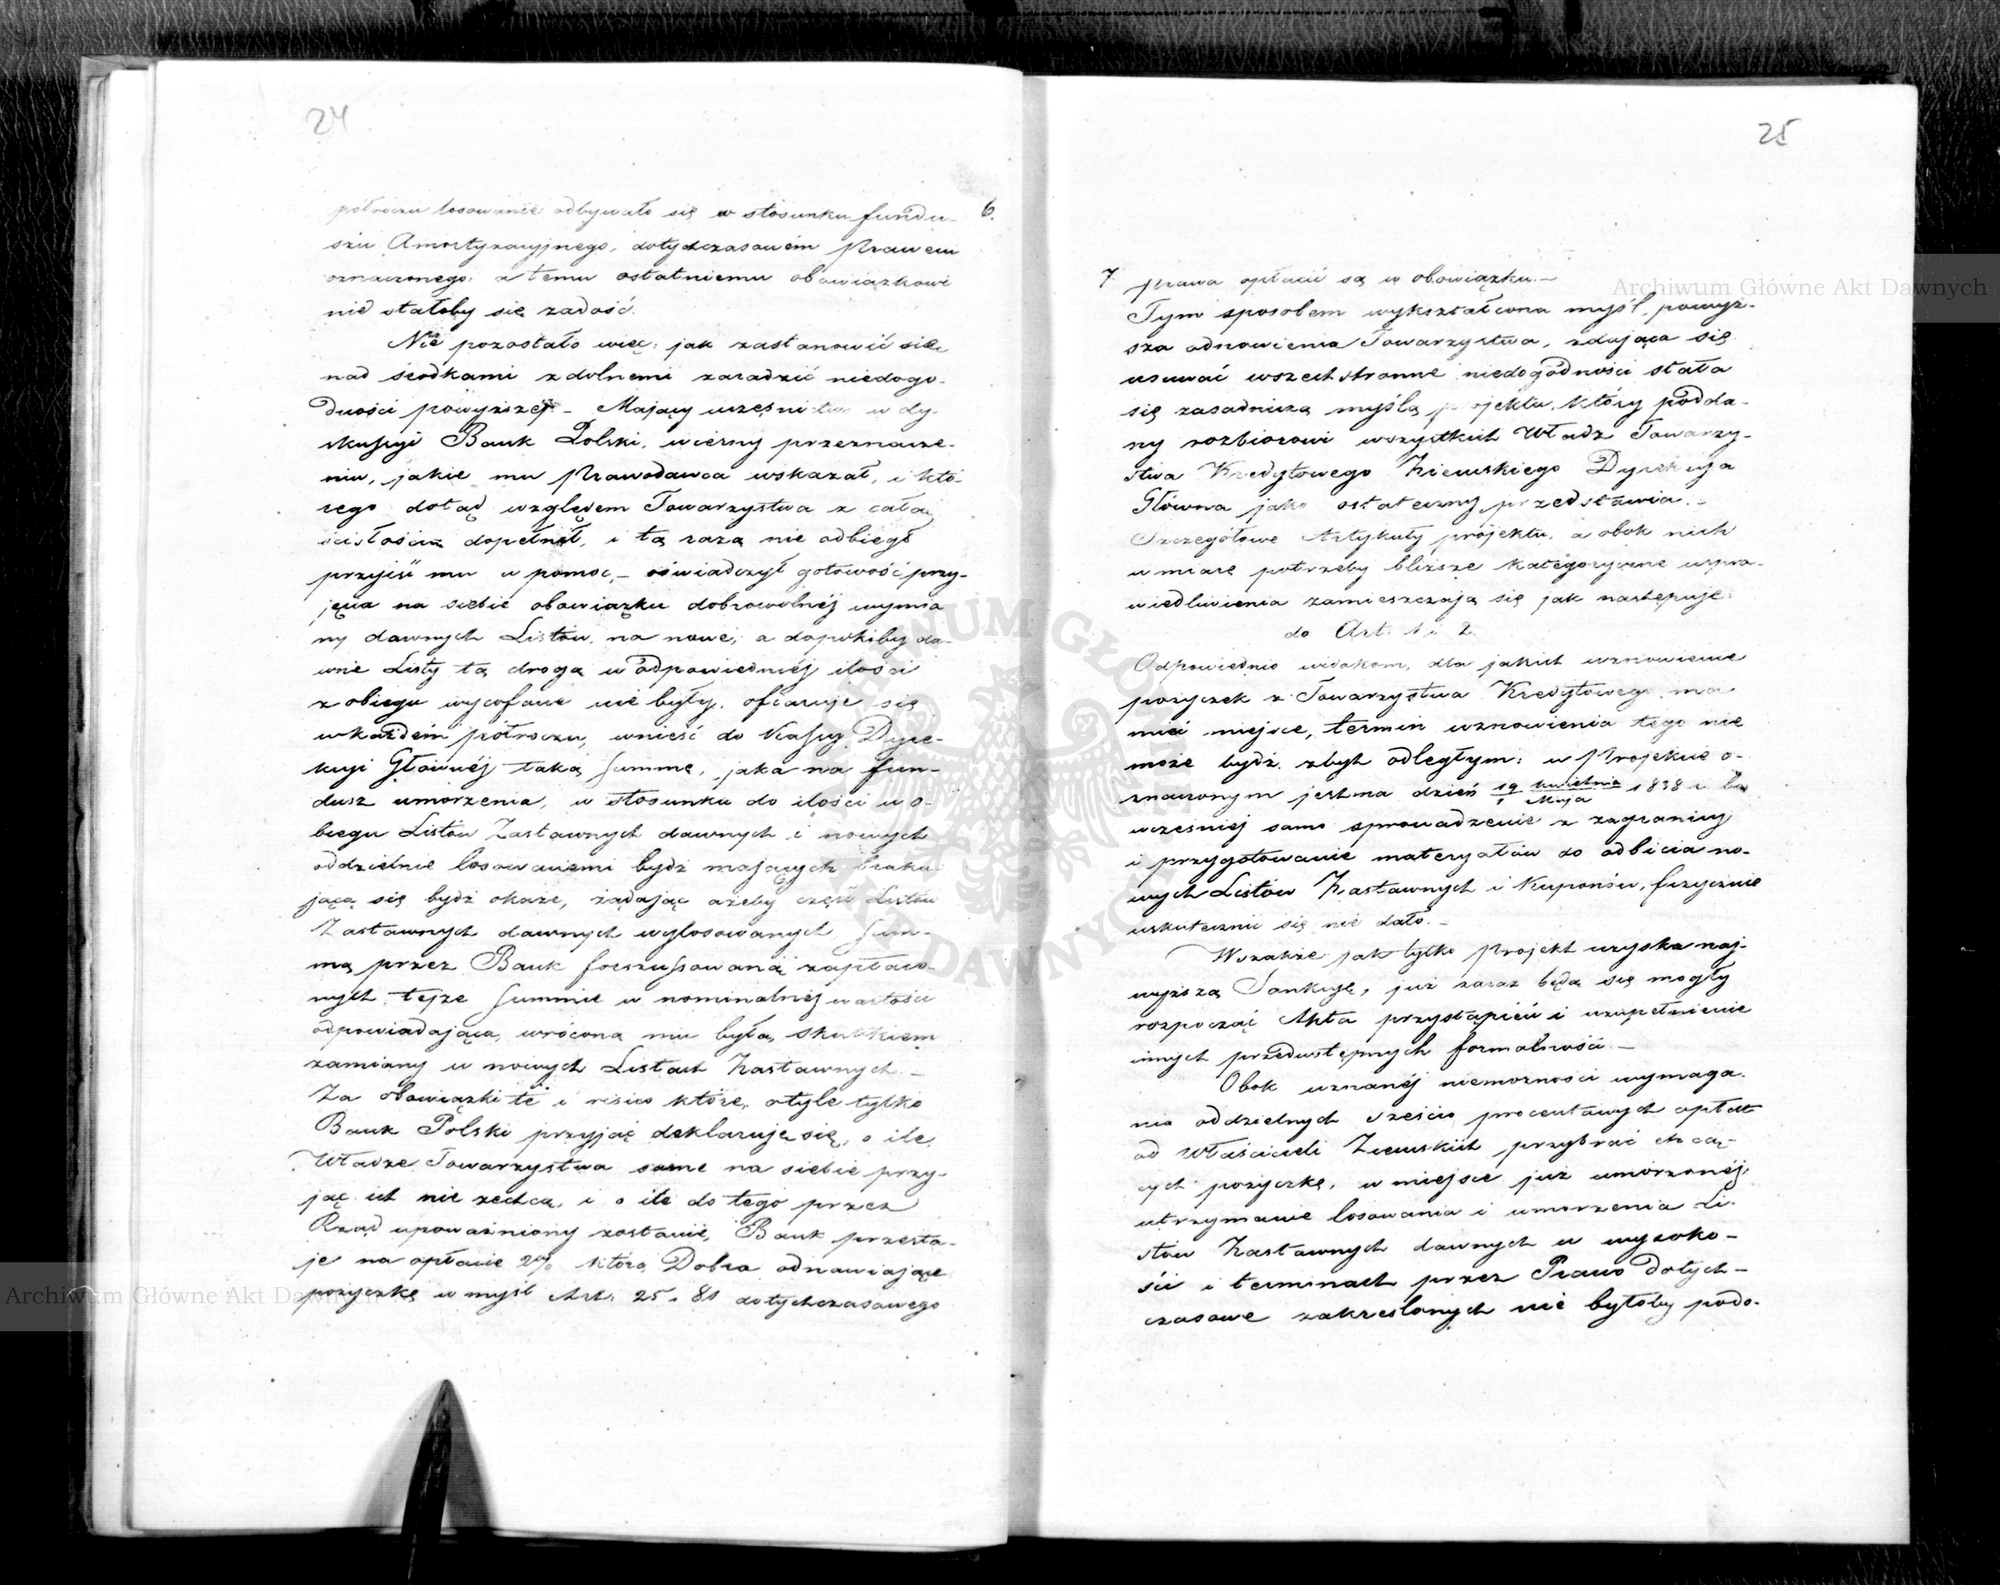 24
6.
półroczu losowanie odbywało się w stosunku fundu-
szu Amortyzacyjnego, dotychczasowém Prawem
oznaczonego: a temu ostatniemu obowiązkowi
nie stałoby się zadość.
Nie pozostało więc: jak zastanowić się
nad środkami zdolnemi zaradzić niedogo-
dności powyższej. – Mający uczęsnictwo w dy-
skussyi Bank Polski, wierny przeznacze-
niu, jakie mu Prawodawca wskazał, i któ-
rego dotąd względem Towarzystwa z całą
ścisłością dopełnił, i tą razą nie odbiegł
przyjść mu w pomoc, – oświadczył gotowość przy-
jęcia na siebie obowiązku dobrowolnéj wymia
ny dawnych Listów na nowe; a dopókiby da-
wne Listy tą drogą w odpowiedniéj ilości
z obiegu wycofane nie były, ofiaruje się
w każdém półroczu, wnieść do Kassy Dyre-
kcyi Głównéj taką summę, jaka na fun-
dusz umorzenia, w stosunku do ilości w o-
biegu Listów Zastawnych dawnych i nowych
oddzielnie losowanemi bydź mających braku-
jącą się bydź okaże, żądając ażeby część Listów
Zastawnych dawnych wylosowanych sum-
mą przez Bank forszussowaną zapłaco-
nych, tejże summie w nominalnéj wartości
odpowiadająca, wróconą mu była, skutkiem
zamiany w nowych Listach Zastawnych. –
Za obowiązki te i risico które, otyle tylko
Bank Polski przyjąć deklaruje się, o ile
Władze Towarzystwa same na siebie przy-
jąć ich nie zechcą, i o ile do tego przez
Rząd upoważniony zostanie, Bank przesta-
je na opłacie 2% którą Dobra odnawiające
pożyczkę w myśl Art. 25 i 81 dotychczasowego
25
7 prawa opłacić są w obowiązku. –
Tym sposobem wykształcona myśl powyż-
sza odnowienia Towarzystwa, zdająca się
usuwać wszechstronne niedogodności stała
się zasadniczą myślą projektu, który podda-
ny rozbiorowi wszystkich Władz Towarzy-
stwa Kredytowego Ziemskiego Dyrekcya
Główna jako ostateczny przedstawia. –
Szczegółowe Artykuły projektu, a obok nich
w miarę potrzeby bliższe kategoryczne uspra-
wiedliwienia zamieszczają się jak następuje:
do Art. 1 i 2.
Odpowiednio widokom, dla jakich wznowienie
pożyczek z Towarzystwa Kredytowego ma
mieć miejsce, termin wznowienia tego nie
może bydź zbyt odległym: w Projekcie o-
znaczonym jest na dzień 19/1 kwietnia/Maja 1838 r. bo
wcześniéj samo sprowadzenie z zagranicy
i przygotowanie materyałów do odbicia no-
wych Listów Zastawnych i Kuponów, fizycznie
uskutecznić się nie dało. –
Wszakże jak tylko Projekt uzyska naj-
wyższą Sankcyę, już zaraz będą się mogły
rozpocząć Akta przystąpień i uzupełnienie
innych przedwstępnych formalności. –
Obok uznanéj niemożności wymaga-
nia oddzielnych sześcio procentowych opłat
od Właścicieli Ziemskich przybrać chcą-
cych pożyczkę, w miejsce już umorzonéj,
utrzymanie losowania i umorzenia Li-
stów Zastawnych dawnych w wysoko-
ści i terminach przez Prawo dotych-
czasowe zakreślonych nie byłoby podo-